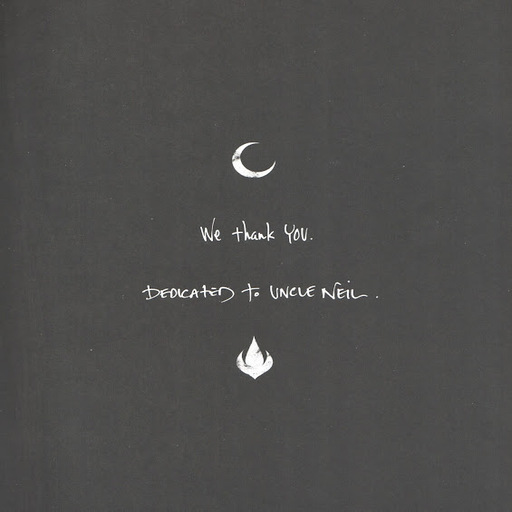 We thank You.
DEDICATED to UNCLE NEIL.